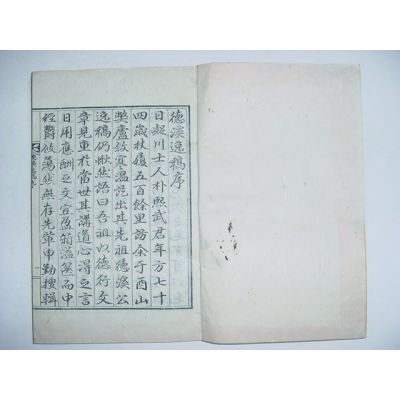 德溪逸稿序
日礙川士人朴熙武君年方七十
四歲杖屨五百餘里訪余于酉山
獎廬敘寒溫訖出其先祖德溪公
逸稿仍愀然語曰吾祖以德行文
章見重於當世其講道心得之言
日用應酬之文宜盈箱溢篋而中
經欝攸蕩然無存先輩申勤搜輯